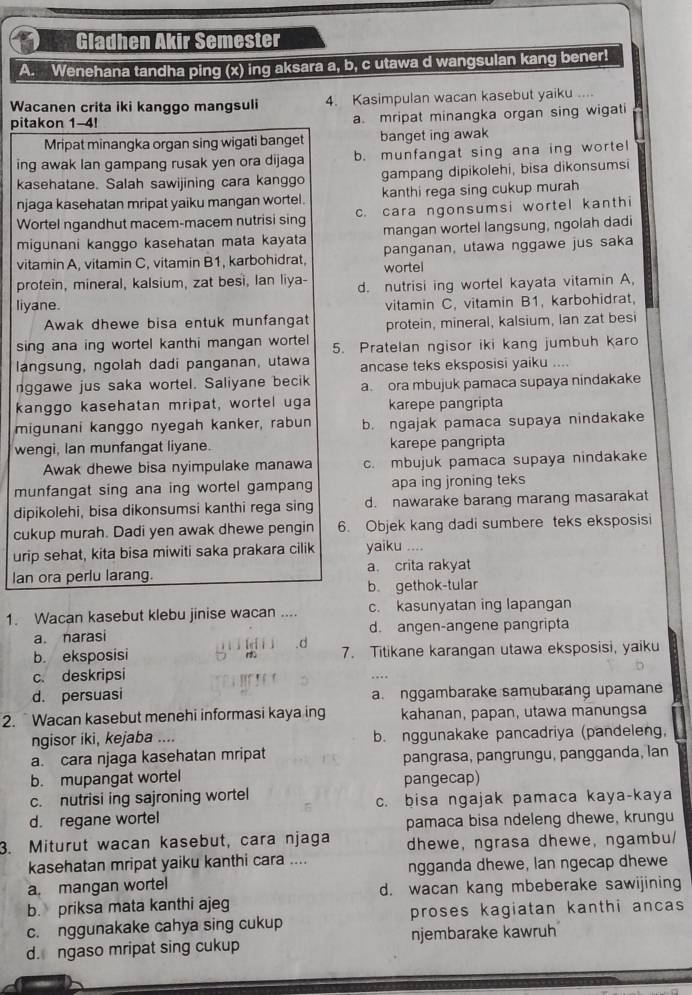 Gladhen Akir Semester
A. Wenehana tandha ping (x) ing aksara a, b, c utawa d wangsulan kang bener!
Wacanen crita iki kanggo mangsuli
pitakon 1–4!
Mripat minangka organ sing wigati banget
ing awak lan gampang rusak yen ora dijaga
kasehatane. Salah sawijining cara kanggo
njaga kasehatan mripat yaiku mangan wortel.
Wortel ngandhut macem-macem nutrisi sing
migunani kanggo kasehatan mata kayata
vitamin A, vitamin C, vitamin B1, karbohidrat,
protein, mineral, kalsium, zat besi, lan liya-
liyane.
Awak dhewe bisa entuk munfangat
sing ana ing wortel kanthi mangan wortel
langsung, ngolah dadi panganan, utawa
nggawe jus saka wortel. Saliyane becik
kanggo kasehatan mripat, wortel uga
migunani kanggo nyegah kanker, rabun
wengi, lan munfangat liyane.
Awak dhewe bisa nyimpulake manawa
munfangat sing ana ing wortel gampang
dipikolehi, bisa dikonsumsi kanthi rega sing
cukup murah. Dadi yen awak dhewe pengin
urip sehat, kita bisa miwiti saka prakara cilik
lan ora perlu larang.
1. Wacan kasebut klebu jinise wacan ....
a. narasi
b. eksposisi
c. deskripsi
d. persuasi
2. Wacan kasebut menehi informasi kaya ing
ngisor iki, kejaba ....
a. cara njaga kasehatan mripat
b. mupangat wortel
c. nutrisi ing sajroning wortel
d. regane wortel
3. Miturut wacan kasebut, cara njaga
kasehatan mripat yaiku kanthi cara ....
a. mangan wortel
b. priksa mata kanthi ajeg
c. nggunakake cahya sing cukup
d. ngaso mripat sing cukup
4. Kasimpulan wacan kasebut yaiku ....
a. mripat minangka organ sing wigati
banget ing awak
b. munfangat sing ana ing wortel
gampang dipikolehi, bisa dikonsumsi
kanthi rega sing cukup murah
c. cara ngonsumsi wortel kanthi
mangan wortel langsung, ngolah dadi
panganan, utawa nggawe jus saka
wortel
d. nutrisi ing wortel kayata vitamin A,
vitamin C, vitamin B1, karbohidrat,
protein, mineral, kalsium, lan zat besi
5. Pratelan ngisor iki kang jumbuh karo
ancase teks eksposisi yaiku ....
a. ora mbujuk pamaca supaya nindakake
karepe pangripta
b. ngajak pamaca supaya nindakake
karepe pangripta
c. mbujuk pamaca supaya nindakake
apa ing jroning teks
d. nawarake barang marang masarakat
6. Objek kang dadi sumbere teks eksposisi
yaiku ....
a. crita rakyat
b. gethok-tular
c. kasunyatan ing lapangan
d. angen-angene pangripta
7. Titikane karangan utawa eksposisi, yaiku
....
a. nggambarake samubarang upamane
kahanan, papan, utawa manungsa
b. nggunakake pancadriya (pandeleng,
pangrasa, pangrungu, pangganda, lan
pangecap)
c. bisa ngajak pamaca kaya-kaya
pamaca bisa ndeleng dhewe, krungu
dhewe, ngrasa dhewe, ngambu/
ngganda dhewe, lan ngecap dhewe
d. wacan kang mbeberake sawijining
proses kagiatan kanthi ancas
njembarake kawruh